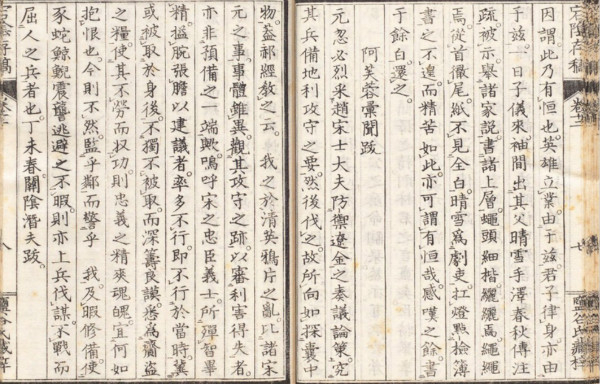 因謂此乃有恒也英雄立業由于茲君子律身亦由
于茲一日子儀來袖間出其父晴雪手澤春秋傳注
疏被示摹諸家說書諸上層蠅頭細楷纚纚焉繩繩
焉從首徹尾紙不見全白晴雪爲劇吏扛燈點撿簿
書之不遑而精苦如此亦可謂有恒哉感嘆之餘書
于餘白還之
阿芙蓉彙聞跋
元忽必烈來趙宋士大夫防禦遼金之奏議論策究
其兵備地利攻守之要然後伐之故所向如探囊中
物蓋郝經教之云　我之於清英鴉片之亂比諸宋
元之事事體雖異觀其攻守之跡以審利害得失者
亦非預備之一端歟嗚呼宋之忠臣義士所殫智畢
精搤腕張膽以建議者率多不行即不行於當時冀
或被取於身後不獨不被取而深籌良謨悉爲齎盜
之糧使其不勞而收功則忠義之精爽魂魄宜何如
抱恨也今則不然監乎鄰而警乎　我及暇修備使
豕蛇鯨鯢震讋逃避之不暇則亦上兵伐謀不戰而
屈人之兵者也丁未春關陰潛夫跋